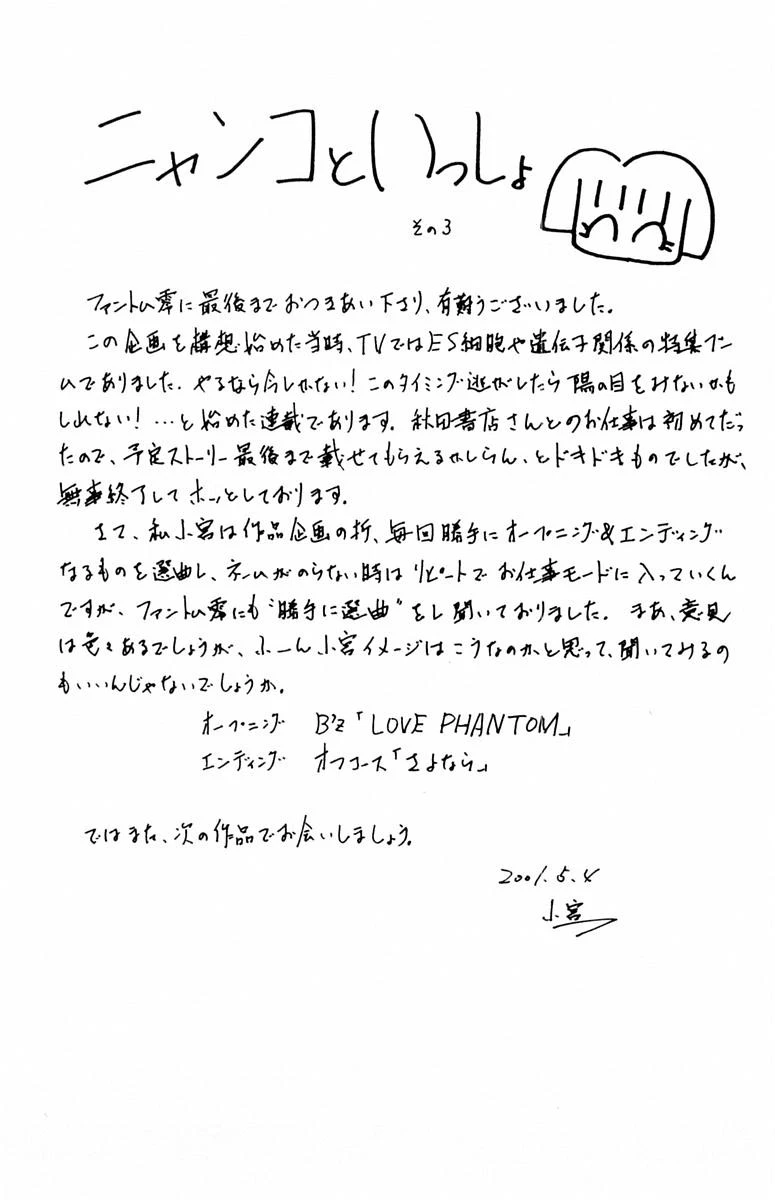 ニャンコといっしょ
その3
ファントム零に最後までおつきあい下さり、有難うございました。
この企画を構想始めた当時、TVではES細胞や遺伝子関係の特集ブー
ムでありました。やるなら今しかない！このタイミング逃がしたら陽の目をみないかも
しれない！…と始めた連載であります。秋田書店さんとのお仕事は初めてだっ
たので、予定ストーリー最後まで載せてもらえるかしらん、とドキドキものでしたが、
無事終了してホッとしております。
さて、私小宮は作品企画の折、毎回勝手にオープニング&エンディング
なるものを選曲し、ネームがのらない時はリピートでお仕事モードに入っていくん
ですが、ファントム零にも"勝手に選曲"をし聞いておりました。まあ、意見
は色々あるでしょうが、ふーん小宮イメージはこうなのかと思って、聞いてみるの
もいいんじゃないでしょうか。
オープニング B'z「LOVE PHANTOM」
エンディング オフコース「さよなら」
ではまた、次の作品でお会いしましょう。
2001.5.4
小宮